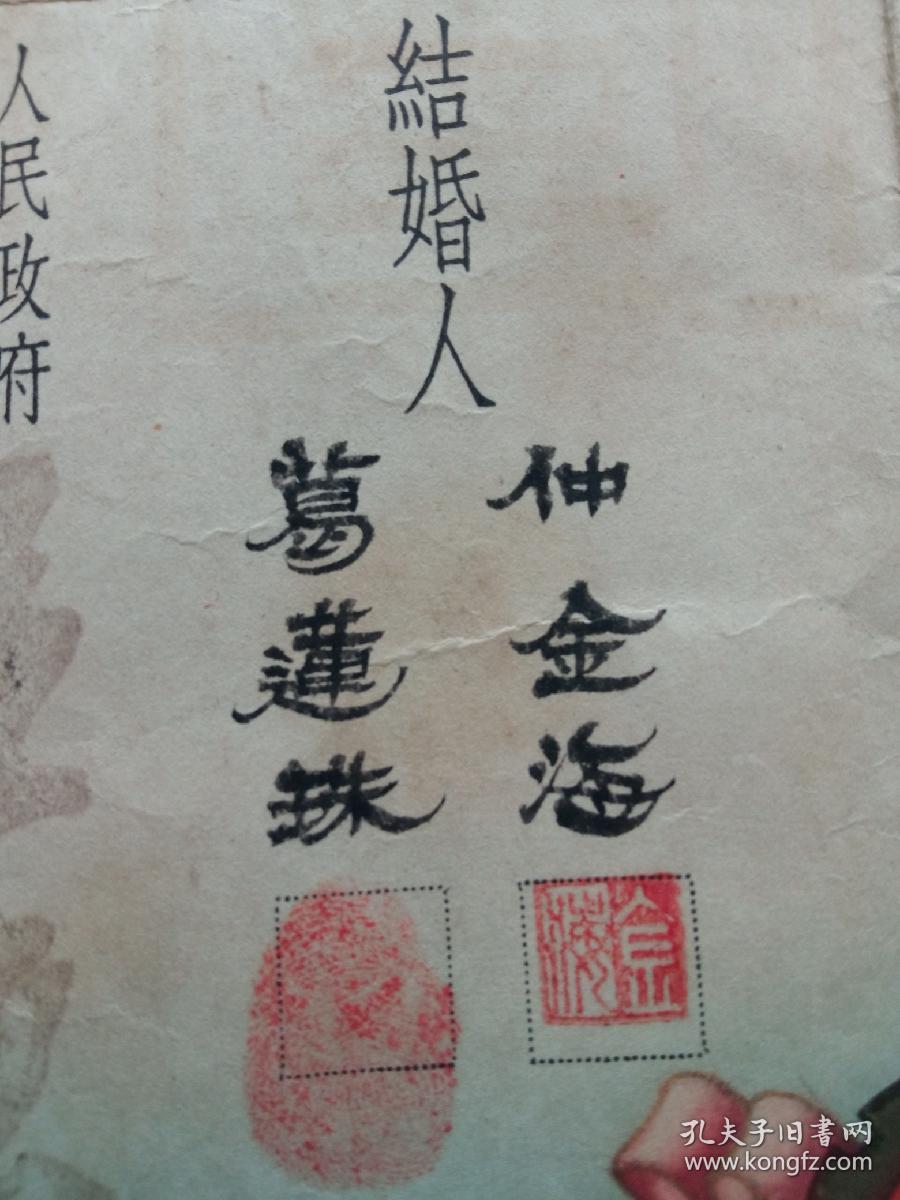 結婚人
仲金海
葛蓮珠
人民政府
金海
孔夫子旧書网
www.kongfz.com